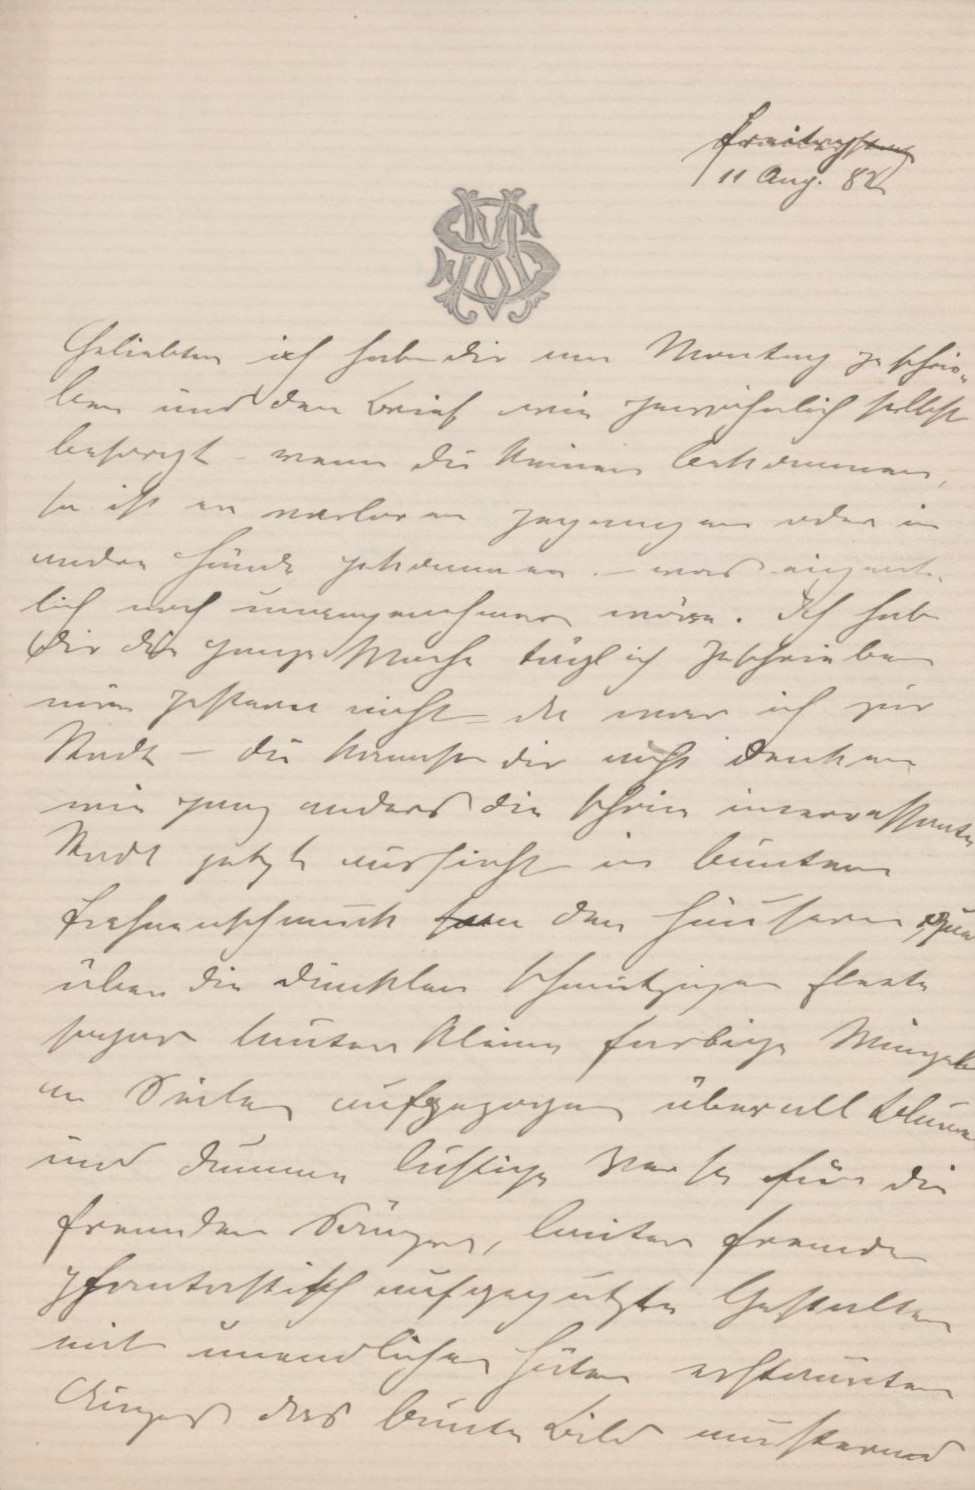 Freitag
11 Aug. 82
Geliebter ich habe dir am Montag geschrie-
ben und den Brief wie gewöhnlich selbst
besorgt – wenn du keinen bekommen,
so ist er verloren gegangen oder in
andre Hände gekommen – was eigent-
lich noch unangenehmer wäre. Ich habe
dir die ganze Woche täglich geschrieben
nur gestern nicht – da war ich zur
Stadt – du kannst dir nicht denken
wie ganz anders die schon interessante
Stadt jetzt aussieht in bunten
Fahnenschmuck von den Häusern
über die dunklen schmutzigen Fleete
sogar lauter kleine farbige Wimpel
an Seilen aufgezogen überall Blumen
und dumme lustige Verse für die
fremden Sänger, lauter fremde
phantastisch aufgeputzte Gestalten
mit unendlichen Hüten erstaunten
Auges das bunte Bild musternd